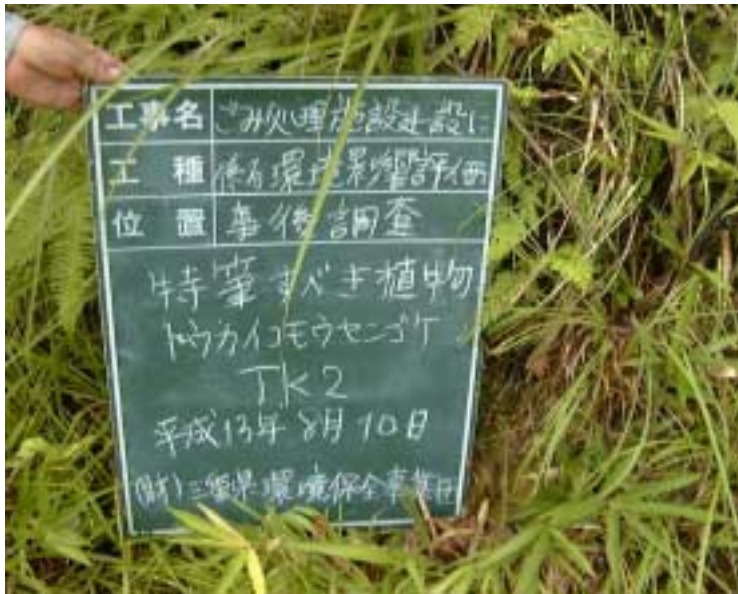 工事名 ごみ処理施設建設に
工種 係る環境影響評価
位置 事後調査
特筆すべき植物
トウカイコモウセンゴケ
TK2
平成13年8月10日
(財)三重県環境保全事業団